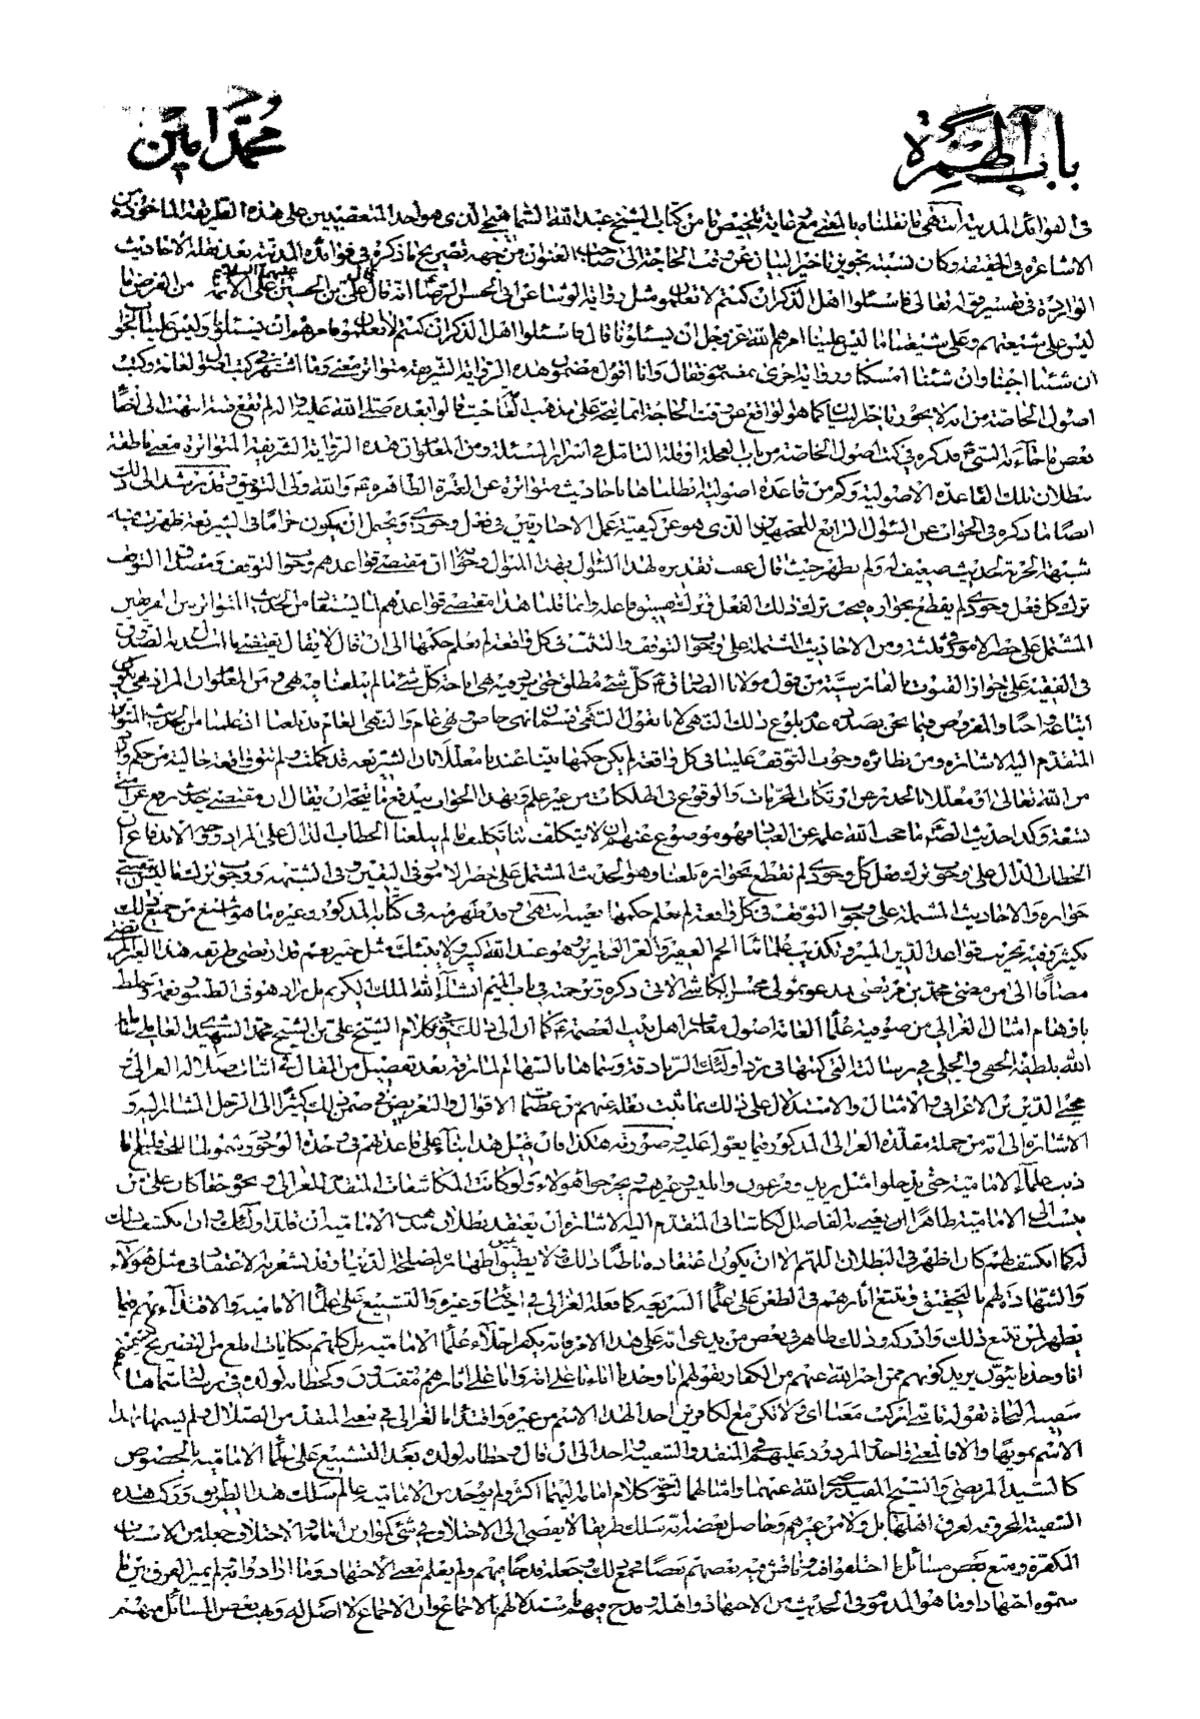 باب الهمزة
محمد امین
فی الفوائد المدنیة انتهی ما نقلناه بالمعنی مع غایة تلخیص ما من کتاب الشیخ عبد الله السماهیجی الذی هو احد المتعصبین علی هذه الطریقة الماخوذة من
الاشاعرة فی الحقیقة وکان نسبته تجویز تاخیر البیان عن وقت الحاجة الی صاحب العنوان من جهة تصریح ما ذکره فی فوائده المدنیة بعد نقله الاحادیث
الواردة فی تفسیر قوله تعالی فاسئلوا اهل الذکر ان کنتم لا تعلمون مثل روایة الوشا عن ابی الحسن الرضا انه قال قال علی بن الحسین علیهما السلام علی الائمة من الفرض ما
لیس علی شیعتهم وعلی شیعتنا ما لیس علینا امرهم الله عز وجل ان یسئلونا قال فاسئلوا اهل الذکر ان کنتم لا تعلمون فامرهم ان یسئلونا ولیس علینا الجواب
ان شئنا اجبنا وان شئنا امسکنا وروایة اخری بمضمونه فقال وانا اقول مضمون هذه الروایة الشریفة متواتر معنی وما اشتهر فی کتب اصول العامة وکتب
اصول الخاصة من انه لا یجوز تاخیر البیان کما هو الواقع عن وقت الحاجة انما یتجه علی مذهب العامة حیث قالوا بعده صلی الله علیه واله لم تقع فتنة انتهت الی اخفاء
بعض ما جاء به النبی فذکره فی کتب اصول الخاصة من باب الغفلة او قلة التامل فی اسرار المسئلة ومن المعلوم ان هذه الروایة الشریفة المتواترة معنی ناطقة
ببطلان تلک القاعدة الاصولیة وکم من قاعدة اصولیة ابطلناها باحادیث متواترة عن العترة الطاهرة والله ولی التوفیق وقد یرشد الی ذلک
ایضا ما ذکره فی الجواب عن السؤال الرابع للمجتهدین الذی هو عن کیفیة عمل الاخباریین فی فعل وجودی یحتمل ان یکون حراما فی الشریعة ظهرت فیه
شبهة الحرمة لحدیث ضعیف او لم یظهر حیث قال عقب تقدیره لهذا السؤال بهذا المنوال وجوابه ان مقتضی قواعدهم وجوب التوقف ومصداق التوقف
ترک کل فعل وجودی لم یقطع بجوازه فیجب ترک ذلک الفعل وترک تفسیق فاعله وانما قلنا هذا مقتضی قواعدهم لما یستفاد من الحدیث المتواتر بین الفریقین
المشتمل علی حصر الامور فی ثلثة ومن الاحادیث المشتملة علی وجوب التوقف والتثبت فی کل واقعة لم یعلم حکمها الی ان قال لا یقال یقتضیه ما استدل به الصدوق
فی الفقیه علی جواز القنوت بالفارسیة من قول مولانا الصادق کل شیء مطلق حتی یرد فیه نهی اباحة کل شیء ما لم یبلغنا فیه نهی ومن المعلوم ان المراد نهی یکون
اتباعه واجبا والمفروض فیما نحن بصدده عدم بلوغ ذلک النهی لانا نقول النهی قسمان نهی خاص ونهی عام والنهی العام قد بلغنا اذ علمنا من الحدیث المتواتر
المتقدم الیه الاشارة ومن نظائره وجوب التوقف علینا فی کل واقعة لم یکن حکمها بینا عندنا معللا بان الشریعة قد کملت ولم تبق واقعة خالیة من حکم وارد
من الله تعالی او معللا بالحذر عن ارتکاب المحرمات والوقوع فی الهلکات من غیر علم وبهذا الجواب یندفع ما یتجه ان یقال ان مقتضی حدیث رفع عن امتی
تسعة وکذا حدیث الصم ما حجب الله علمه عن العباد فهو موضوع عنهم ان لا یتکلف بنا تکلیف ما لم یبلغنا الخطاب الدال علی المراد ووجه الاندفاع ان
الخطاب الدال علی وجوب ترک فعل کل وجودی لم نقطع بجوازه بلغنا وهو الحدیث المشتمل علی حصر الامور فی الیقین وفی الشبهة ووجوب ترک ما لیس بیقینی
جوازه والاحادیث المشتملة علی وجوب التوقف فی کل واقعة لم یعلم حکمها بعینه انتهی وقد ظهر منه فی کتابه المذکور وغیره ما هو اشنع من جمیع ذلک
بکثیر وفیه تخریب قواعد الدین المبین وتکذیب علمائنا الجم الغفیر والغر المیامین وهو عند الله کبیر ولا ینبئک مثل خبیر نعم قد ارتضی طریقته هذا العالم
مضافا الی من مضی محمد بن مرتضی المدعو بمولی محسن الکاشی الاتی ذکره وترجمته فی باب المیم انشاء الله الملک الکریم بل زاد هو فی الطنبور نغمة
بافهام امثال الغزالی من صوفیة علماء العامة اصول معارف اهل بیت العصمة کما ان الی ذلک یؤمی کلام الشیخ علی بن الشیخ محمد الشهیدی العاملی عاملهما
الله بلطیفه الخفی والجلی فی رسالته التی کتبها فی رد اولئک الزنادقة وسماها بالسهام المارقة بعد تفصیل من المقال فی اثبات ضلالة الغزالی و
محیی الدین بن الاعرابی والامثال والاستدلال علی ذلک بما ثبت نقله عنهم من عظائم الاقوال والتعریض فی ضمن ذلک کثیرا الی الرجل المشار الیه و
الاشارة الی انه من جملة مقلدة الغزالی المذکور فیما یعول علیه صورته هکذا فان قیل هذا بناء علی قاعدهم فی وحدة الوجود وشمولها الخ قلنا فما
ذنب علماء الامامیة حتی یدخلوا مثل یزید وفرعون وابلیس وغیرهم ویخرجوا هؤلاء ولو کانت المکاشفات المتقدمة للغزالی ونحوه حقا کان علی من
ینسب الی الامامیة ظاهرا ان یعنی به الفاضل الکاشانی المتقدم الیه الاشارة ان یعتقد بطلان مذهب الامامیة ان قلد اولئک وان انکشف ذلک
له کما انکشف لهم کان اظهر فی البطلان اللهم الا ان یکون اعتقاده باطنا ذلک ولا یطیق اظهاره لمصلحة الدنیا وقد یشعر به الاعتقاد فی مثل هؤلاء
والشهادة لهم بالتحقیق وتتبع اثارهم فی الطعن علی علماء الشریعة کما فعله الغزالی فی احیائه وغیره والتشنیع علی علماء الامامیة والاقتداء بهم فیما
یظهر لمن تتبع ذلک وادرکه وذلک ظاهر فی بعض من یدعی انه علی هذا الامر فانه یکفر اجلاء علماء الامامیة بل کلهم بکنایات ابلغ من التصریح کتسمیتهم
انا وجدنائیون یرید کونهم ممن اخبر الله عنهم من الکفار بقولهم انا وجدنا اباءنا علی امة وانا علی اثارهم مقتدون وکخطابه لولده فی رسالة سماها
سفینة النجاة بقوله یا بنی ارکب معنا ای ولا تکن مع الکافرین اخذ لهذا الاسم من غیره واقتداء بالغزالی فی تسمیة المنقذ من الضلال ولم یسمها بهذا
الاسم تمویها والا فالمعنی واحد المردود علیهم فی المنقذ والسفینة واحد الی ان قال وخطابه لولده بعد التشنیع علی علماء الامامیة بالخصوص
کالسید المرتضی والشیخ المفید رضی الله عنهما وامثالهما لتوجه کلام امامه الیهما اکثر ولم یوجد من الامامیة عالم سلک هذا الطریق ورکب هذه
السفینة المخروقة لغرق اهلها بل ولا من غیرهم وحاصل بعضه انه سلک طریقا لا یفضی الی الاختلاف فی شیء کموارد بن العامة والاختلاف جعله من الاسباب
المکفرة وتتبع بعض مسائل ما اختلفوا فیه وناقش فیه بعضهم بعضا فجمع ذلک وجعله قدحا فیهم ولم یعلم معنی الاجتهاد وما ارادوا به ولم یمیز الفرق بین ما
سموه اجتهادا وما هو المذموم فی الحدیث من الاجتهاد واهله وقدح فیهم باستدلالهم بالاجماع وان الاجماع لا اصل له وهب بعض المسائل منهم